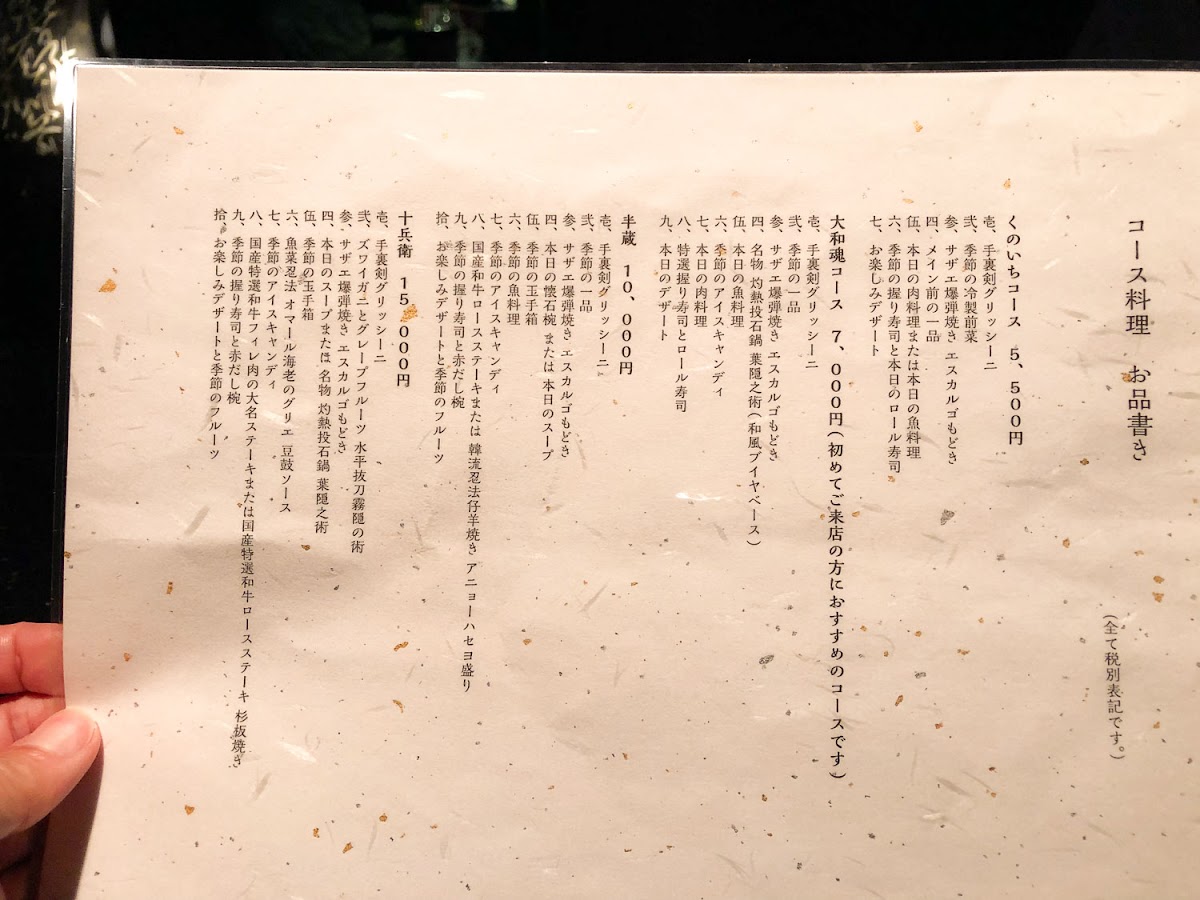 コース料理　お品書き
(全て税別表記です。)
くのいちコース　5、500円
壱、手裏剣グリッシーニ
弐、季節の冷製前菜
参、サザエ爆弾焼き エスカルゴもどき
四、メイン前の一品
伍、本日の肉料理または本日の魚料理
六、季節の握り寿司と本日のロール寿司
七、お楽しみデザート
大和魂コース　7、000円(初めてご来店の方におすすめのコースです)
壱、手裏剣グリッシーニ
弐、季節の一品
参、サザエ爆弾焼き エスカルゴもどき
四、名物 灼熱投石鍋 葉隠之術(和風ブイヤベース)
伍、本日の魚料理
六、季節のアイスキャンディ
七、本日の肉料理
八、特選握り寿司とロール寿司
九、本日のデザート
半蔵　10、000円
壱、手裏剣グリッシーニ
弐、季節の一品
参、サザエ爆弾焼き エスカルゴもどき
四、本日の懐石椀 または 本日のスープ
伍、季節の玉手箱
六、季節の魚料理
七、季節のアイスキャンディ
八、国産和牛ロースステーキまたは 韓流忍法仔羊焼き アニョーハセヨ盛り
九、季節の握り寿司と赤だし椀
拾、お楽しみデザートと季節のフルーツ
十兵衛　15、000円
壱、手裏剣グリッシーニ
弐、ズワイガニとグレープフルーツ 水平抜刀霧隠の術
参、サザエ爆弾焼き エスカルゴもどき
四、本日のスープまたは 名物 灼熱投石鍋 葉隠之術
伍、季節の玉手箱
六、魚菜忍法 オマール海老のグリエ 豆鼓ソース
七、季節のアイスキャンディ
八、国産特選和牛フィレ肉の大名ステーキまたは国産特選和牛ロースステーキ 杉板焼き
九、季節の握り寿司と赤だし椀
拾、お楽しみデザートと季節のフルーツ